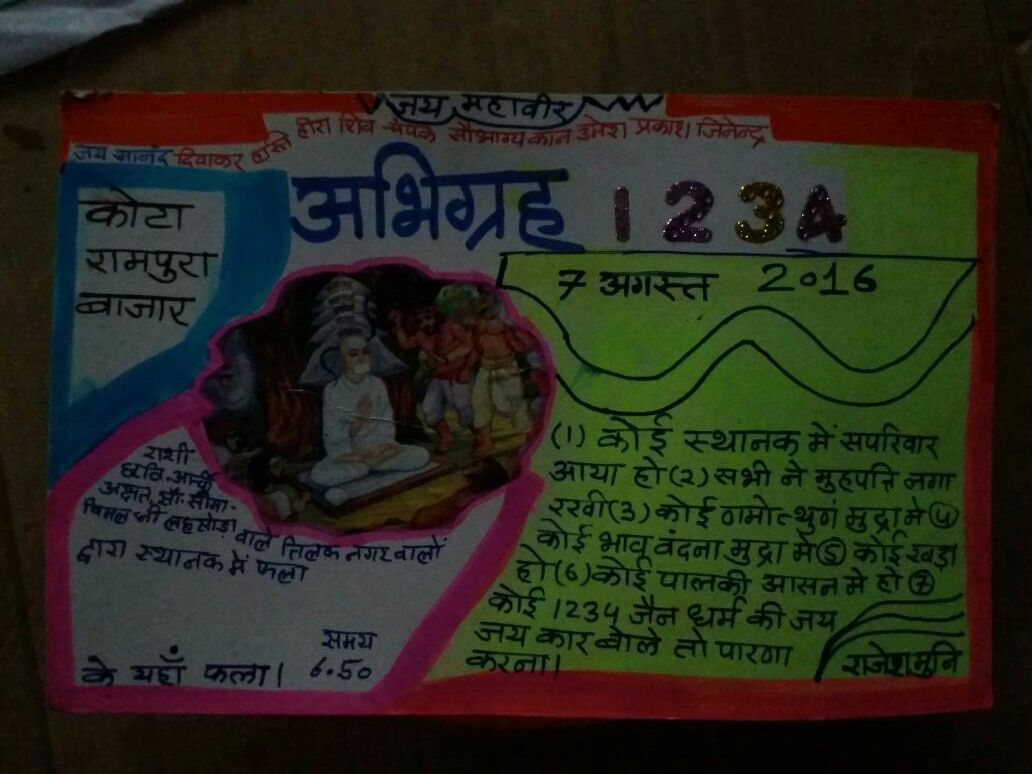 जय महावीर
जय आनंद दिवाकर हस्ति हीरा शिव चंपक सौभाग्य कान उमेश प्रकाश जिनेन्द्र
अभिग्रह 1234
कोटा
रामपुरा
बाजार
7 अगस्त 2016
(1) कोई स्थानक में सपरिवार
आया हो (2) सभी ने मुहपत्ति लगा
रखी (3) कोई णमोत्थुणं मुद्रा मे ④
कोई भाव वंदना मुद्रा में ⑤ कोई खड़ा
हो (6) कोई पालकी आसन मे हो ⑦
कोई 1234 जैन धर्म की जय
जय कार बोले तो पारणा
करना।
राजेशमुनि
राशी
छवि, आर्ची
अक्षत, सौ. सीमा-
विमल जी लहसोड़ा वाले तिलक नगर वालों
द्वारा स्थानक में फला
समय
के यहाँ फला। 6.50